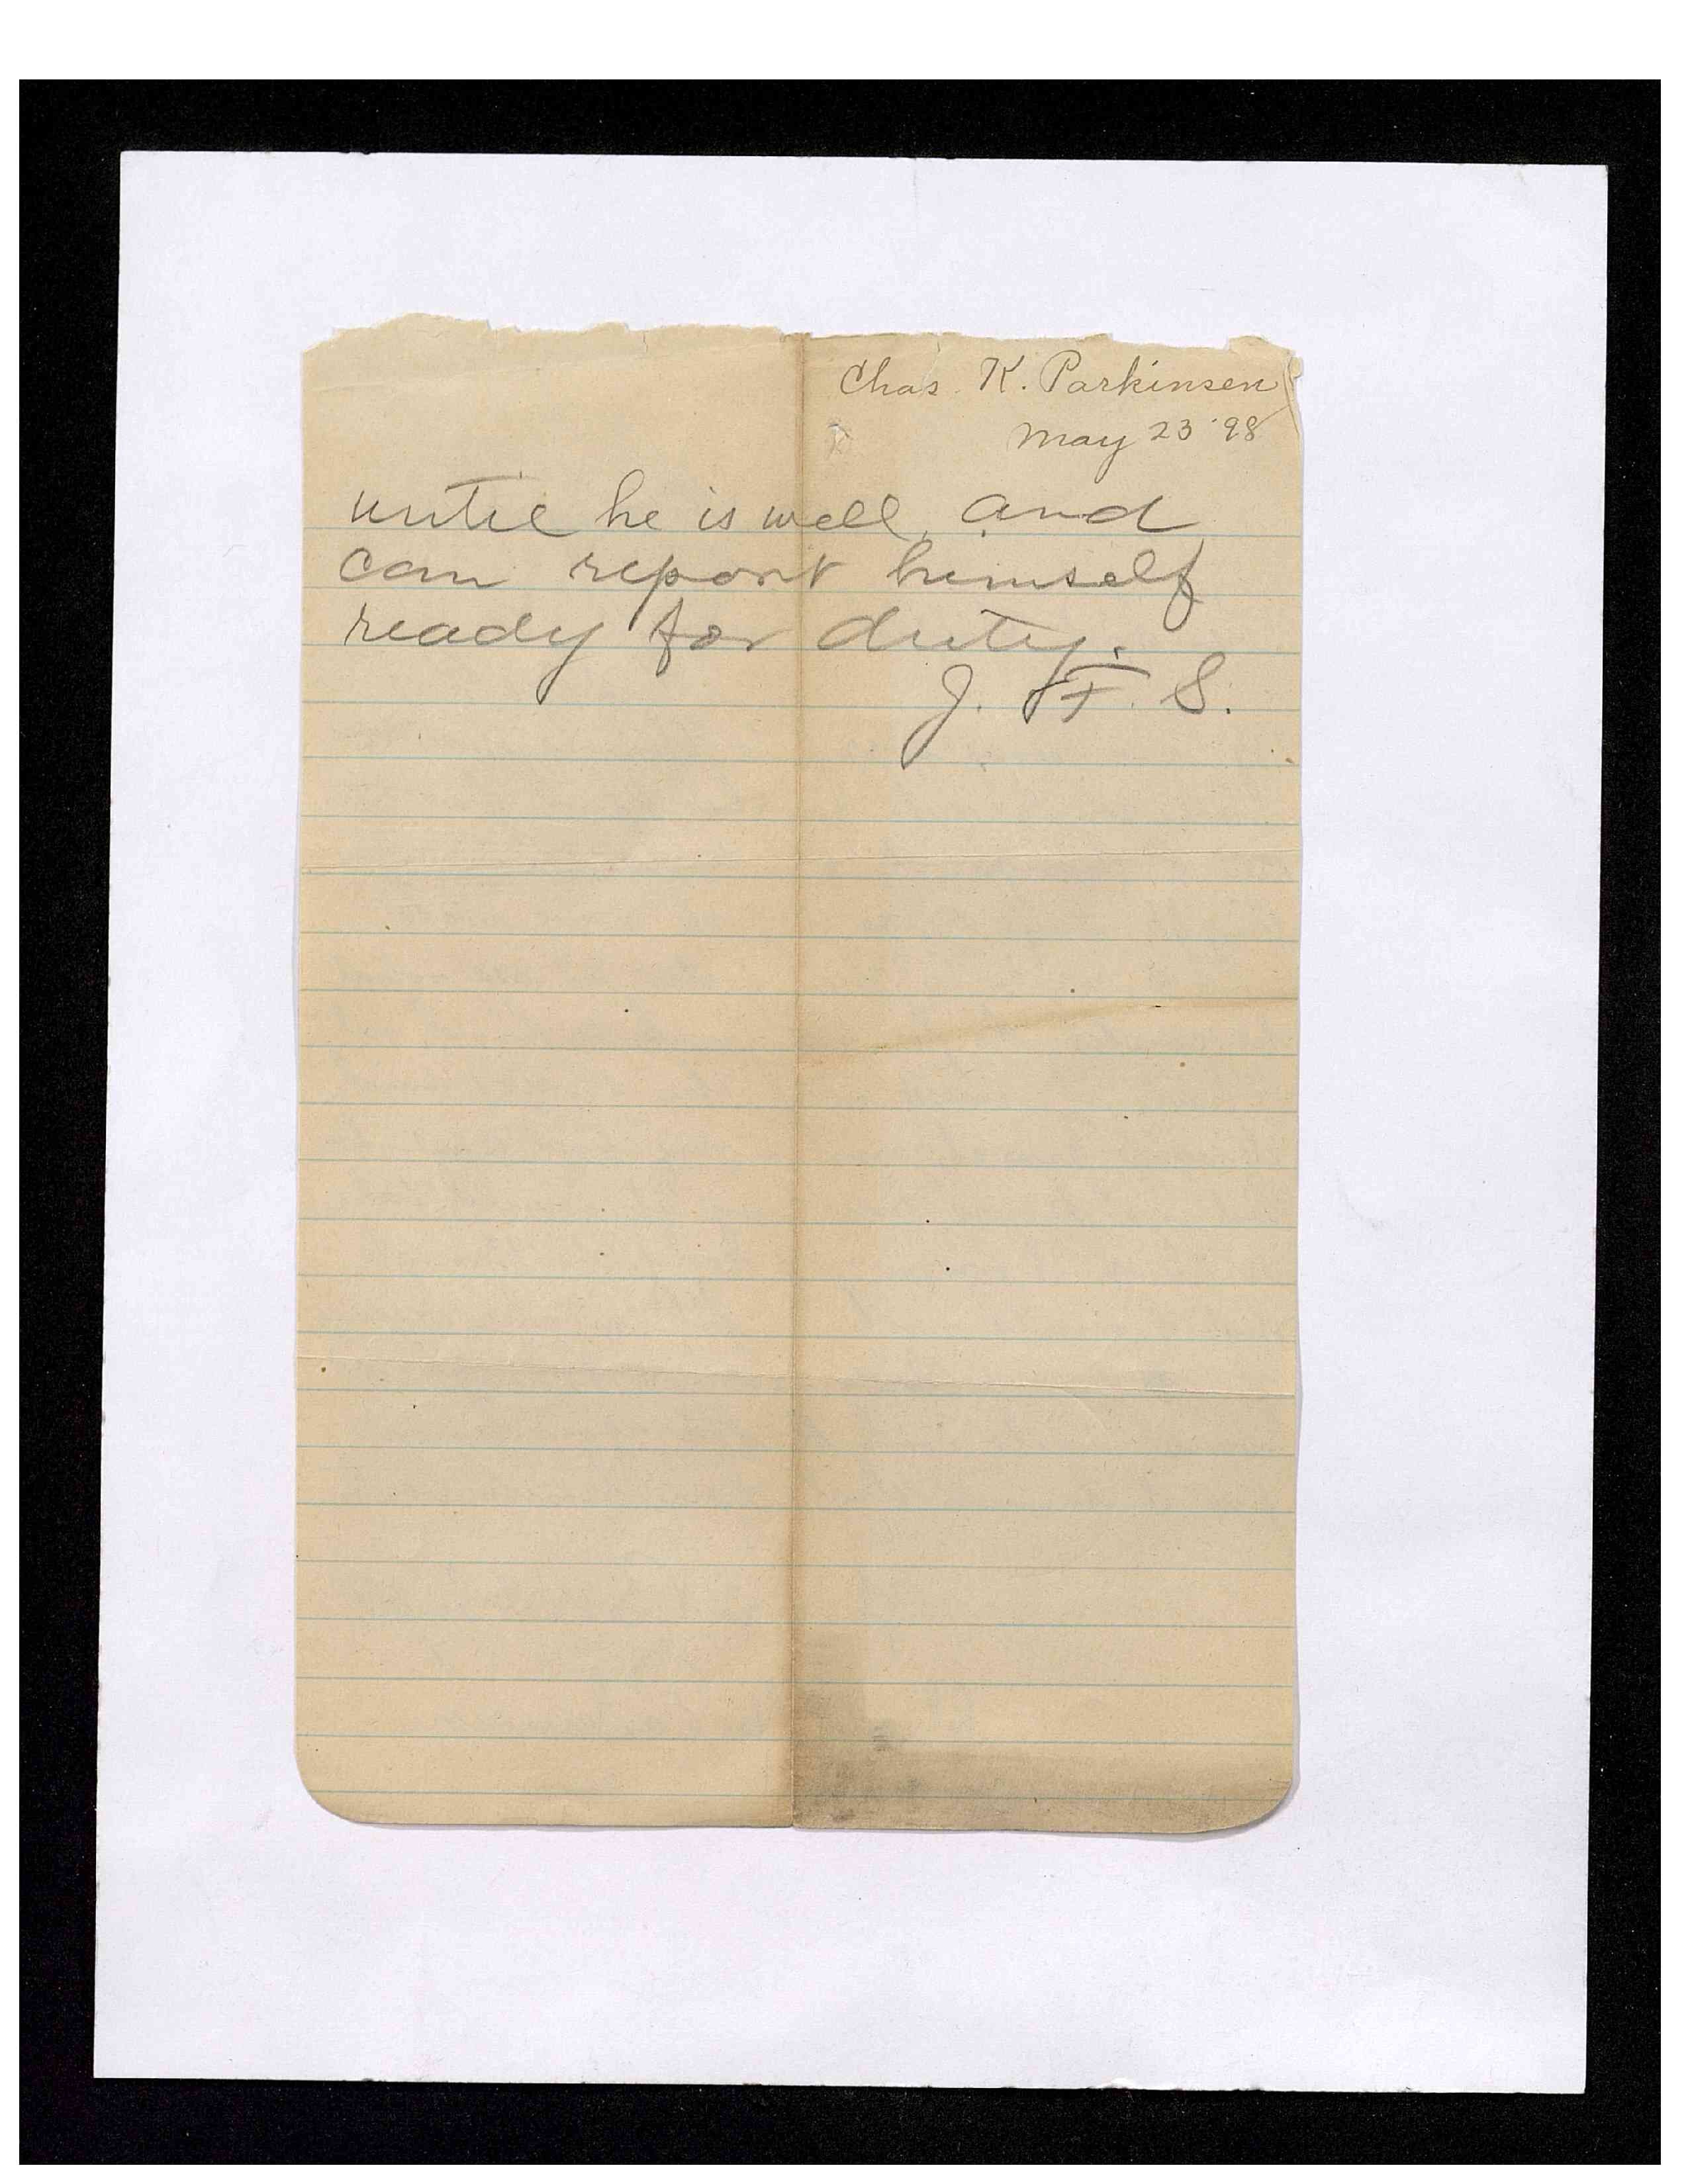 Chas. K. Parkinsen
May 23 '98
until he is well, and
can report himself
ready for duty.
J. F. S.